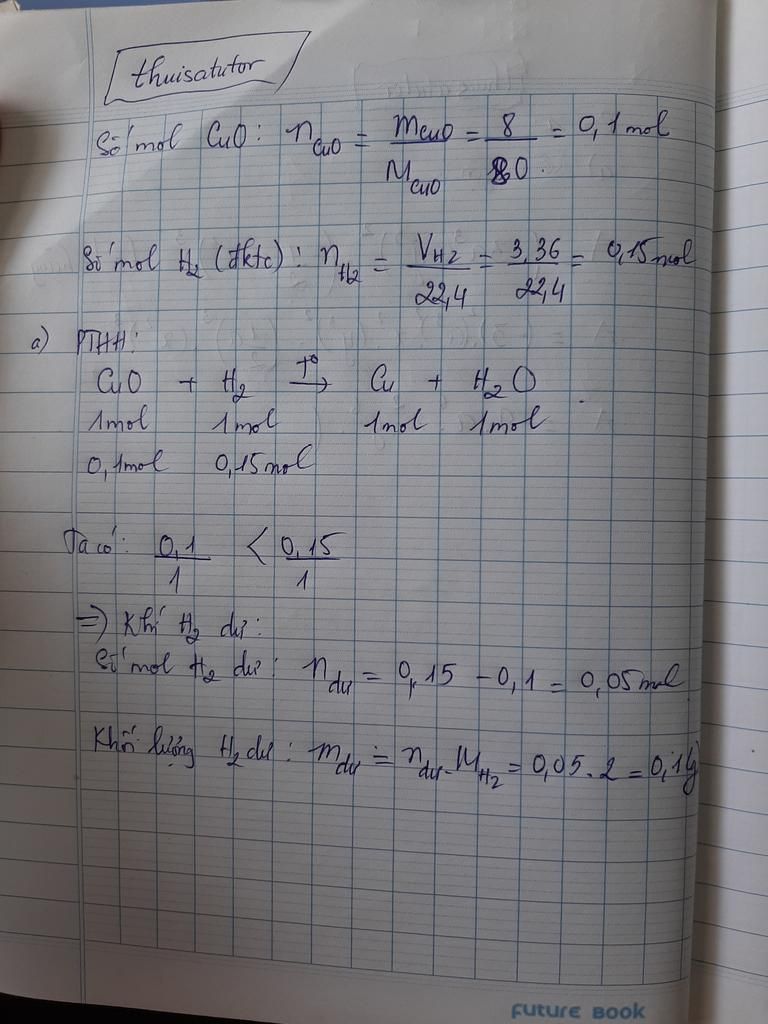 thuisatutor
Số mol CuO: n_CuO = m_CuO / M_CuO = 8 / 80 = 0,1 mol
Số mol H₂ (đktc): n_H₂ = V_H₂ / 22,4 = 3,36 / 22,4 = 0,15 mol
a) PTHH:
CuO + H₂ →(t°) Cu + H₂O
1mol 1mol 1mol 1mol
0,1mol 0,15mol
Ta có: 0,1 / 1 < 0,15 / 1
=> Khí H₂ dư:
Số mol H₂ dư: n_dư = 0,15 - 0,1 = 0,05 mol
Khối lượng H₂ dư: m_dư = n_dư. M_H₂ = 0,05. 2 = 0,1(g)
FUTURE BOOK